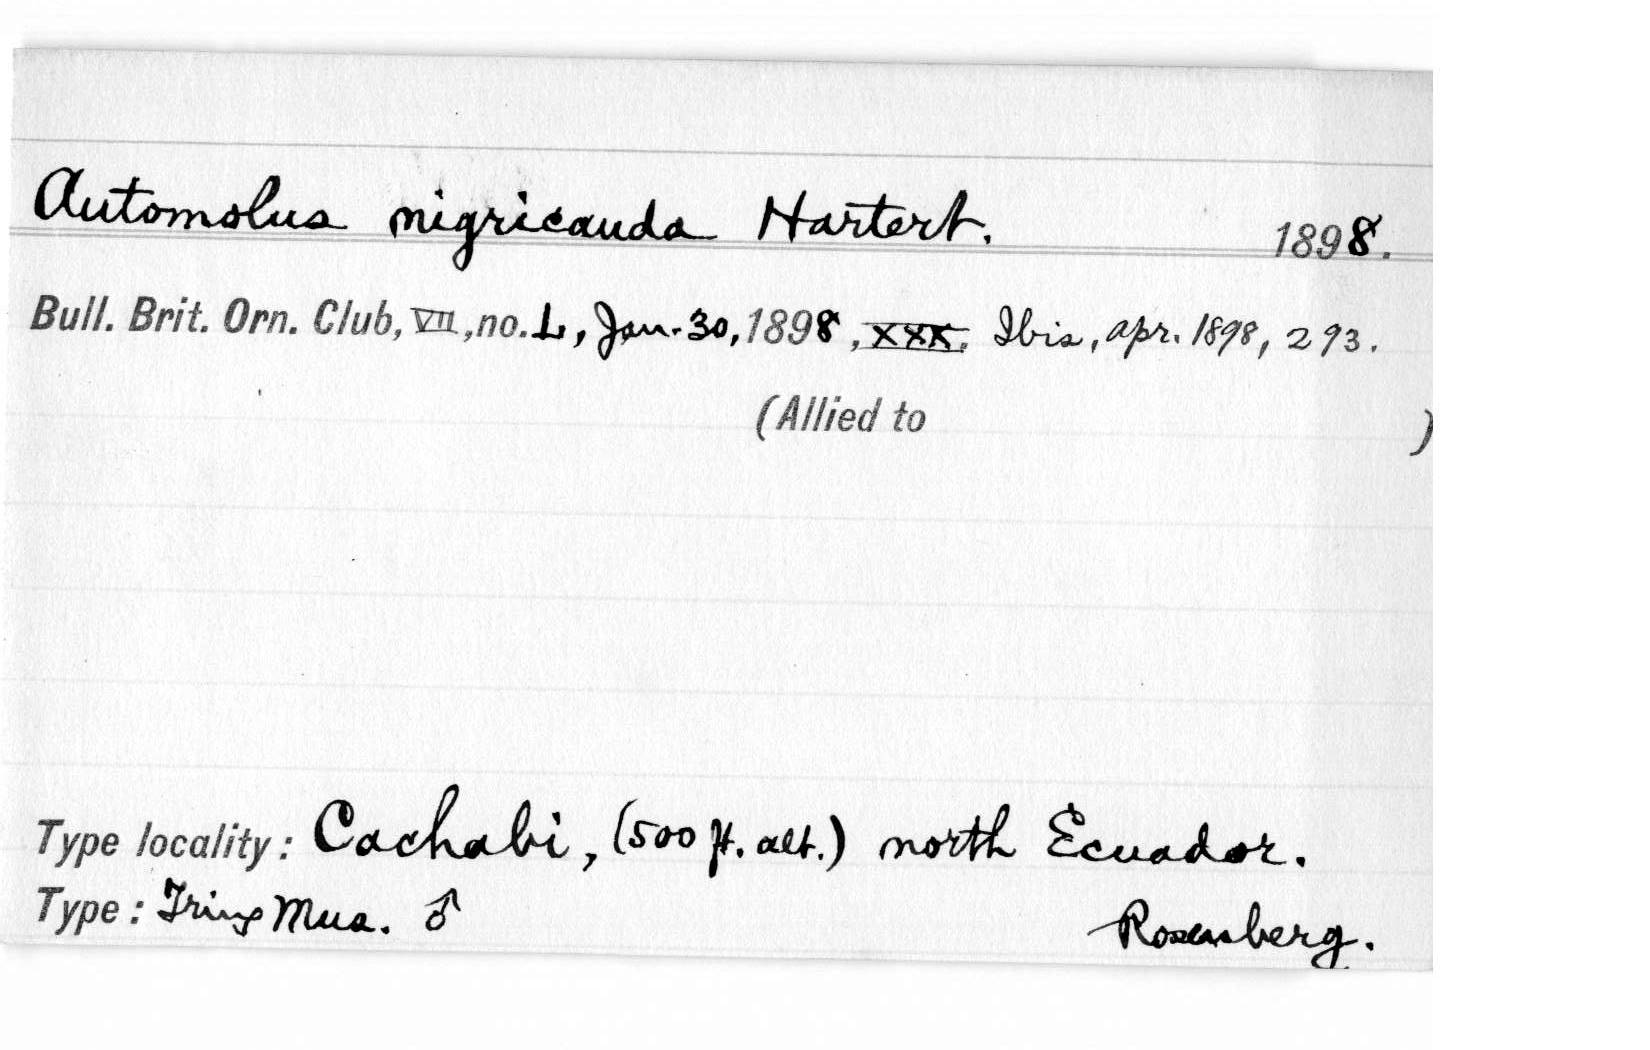 Automolus nigricauda Hartert. 1898.
Bull. Brit. Orn. Club, VII, no. L, Jan. 30, 1898, XXX. Ibis, Apr. 1898, 293.
(Allied to )
Type locality: Cachabi, (500 ft. alt.) north Ecuador.
Type: Tring Mus. ♂ Rosenberg.